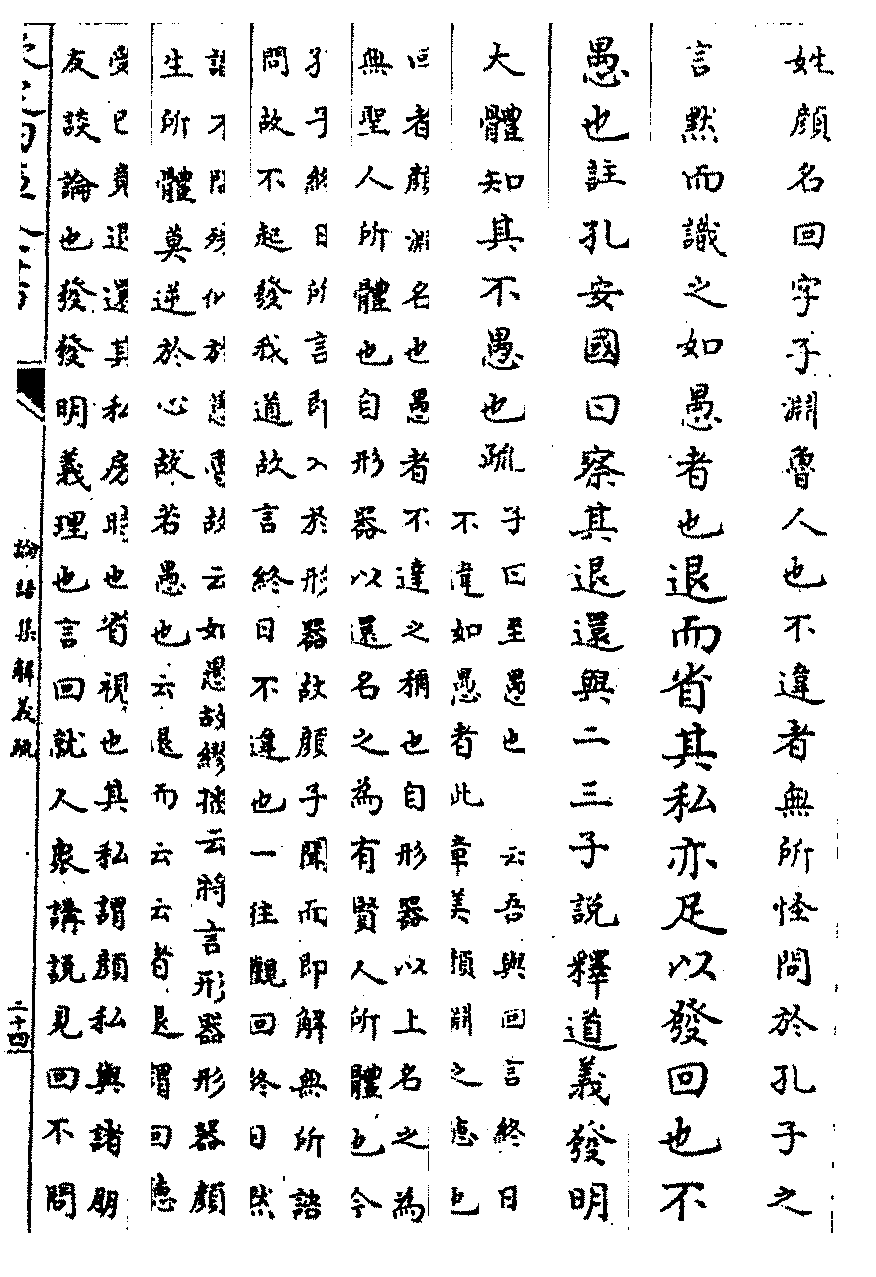 姓顔名回字子淵魯人也不違者無所怪問於孔子之
言黙而識之如愚者也退而省其私亦足以發回也不
愚也註孔安國曰察其退還與二三子說釋道義發明
大體知其不愚也疏
子曰至愚也　云吾與回言終日
不違如愚者此章美顔淵之徳也
回者顔淵名也愚者不達之稱也自形器以上名之為
無聖人所體也自形器以還名之為有賢人所體也今
孔子終日所言即入於形器故顔子聞而即解無所諮
問故不起發我道故言終日不違也一往觀回終日然
不問殊似於愚魯故云如愚故繆播云將言形器形器顔
生所體莫逆於心故若愚也云退而云云者退謂回聽
受已竟退還其私房時也省視也其私謂顔私與諸朋
友談論也發發明義理也言回就人衆講說見回不問
欽定四庫全書
論語集解義疏
二十四